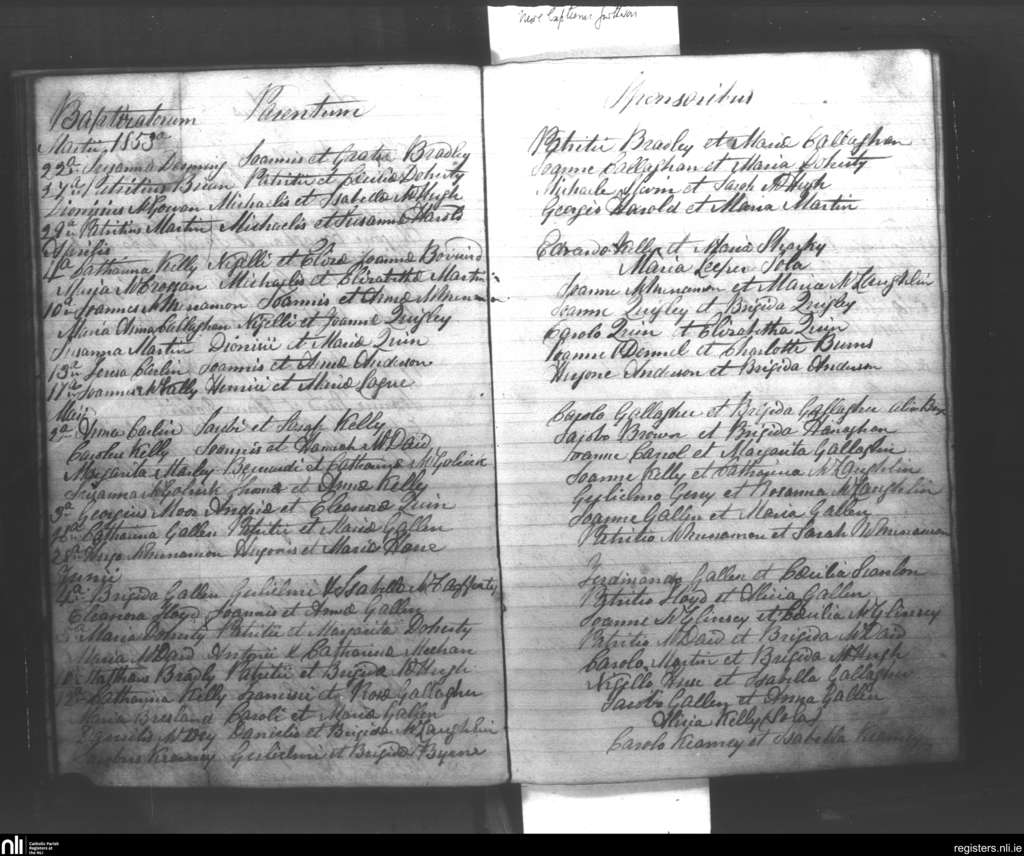 Baptizatorum Parentum
Martii, 1853
22a Susanna Joannis et Bradley
27a Patritius Brian Patritii et Cecilia Doherty
Dionisius McGowan Michaelis et Isabella McHugh
29a Patritius Martin Michaelis et Susanna Harold
Aprilis
Catharina Kelly Nigelli et
Michaelis et Elizabetha Martin
10a Joannes McMenamon Joannis et Anna McMenamon
Maria Anna Callaghan Nigelli et Joanna Quigley
Susanna Martin Dionisii et Maria Quin
13a Carlin Joannis et Anna Anderson
17a Joannes McNally Henrici et Maria Logue
Maii
2a Anna Carlin Jacobi et Sarah Kelly
Caroline Kelly Joannis et Hannah McDaid
Margarita Marley Bernardi et Catharina McGoldrick
Susanna McGoldrick Thoma et Anna Kelly
3a Georgius Moor Andrea et Eleanora Quin
Catharina Gallen Patritii et Maria Gallen
Hugo McMenamon Hugonis et Maria
Junii
4a Brigida Gallen Gulielmi & Isabella McLafferty
Eleanora Floyd Joannis et Anna Gallen
Maria Doherty Patritii et Margarita Doherty
Maria McDaid Antonii & Catharina Meehan
Bradly Patritii et Brigida McHugh
Catharina Kelly et Rosa Gallagher
Maria Bresland Caroli et Maria Gallen
Daniel McDey Danielis et Brigida McLaughlin
Jacobus Kearney Gulielmi et Brigida Byrne
Sponsoribus
Patritii Bradley et Maria Callaghan
Joanne Callaghan et Maria Doherty
Michaele et Sarah McHugh
Georgio Harold et Maria Martin
Edvardo Kelly et Maria Sharky
Maria Leeper Sola
Joanne McMenamon et Maria McLaughlin
Joanne Quigley et Brigida Quigley
Carolo Quin et Elizabetha Quin
Joanne O'Donnel et Charlotte Burns
Hugone Anderson et Brigida Anderson
Carolo Gallagher et Brigida Gallagher
Jacobo Brown et Brigida Hanaghan
Joanne Carrol et Margarita Gallagher
Joanne Kelly et Catharina McLaughlin
Gulielmo et Rosanna McLaughlin
Joanne Gallen et Maria Gallen
Patritio McMenamon et Sarah McMenamon
Ferdinando Gallen et Cecilia Scanlon
Patritio Floyd et Alicia Gallen
Joanne McGlinsey et Cecilia McGlinsey
Patritio McDaid et Brigida McDaid
Carolo Martin et Brigida McHugh
Nigello et Isabella Gallagher
Jacobo Gallen et Anna Gallen
Alicia Kelly Sola
Carolo Kearney et Isabella Kearney
nli
Catholic Parish
Registers at
the NLI
registers.nli.ie